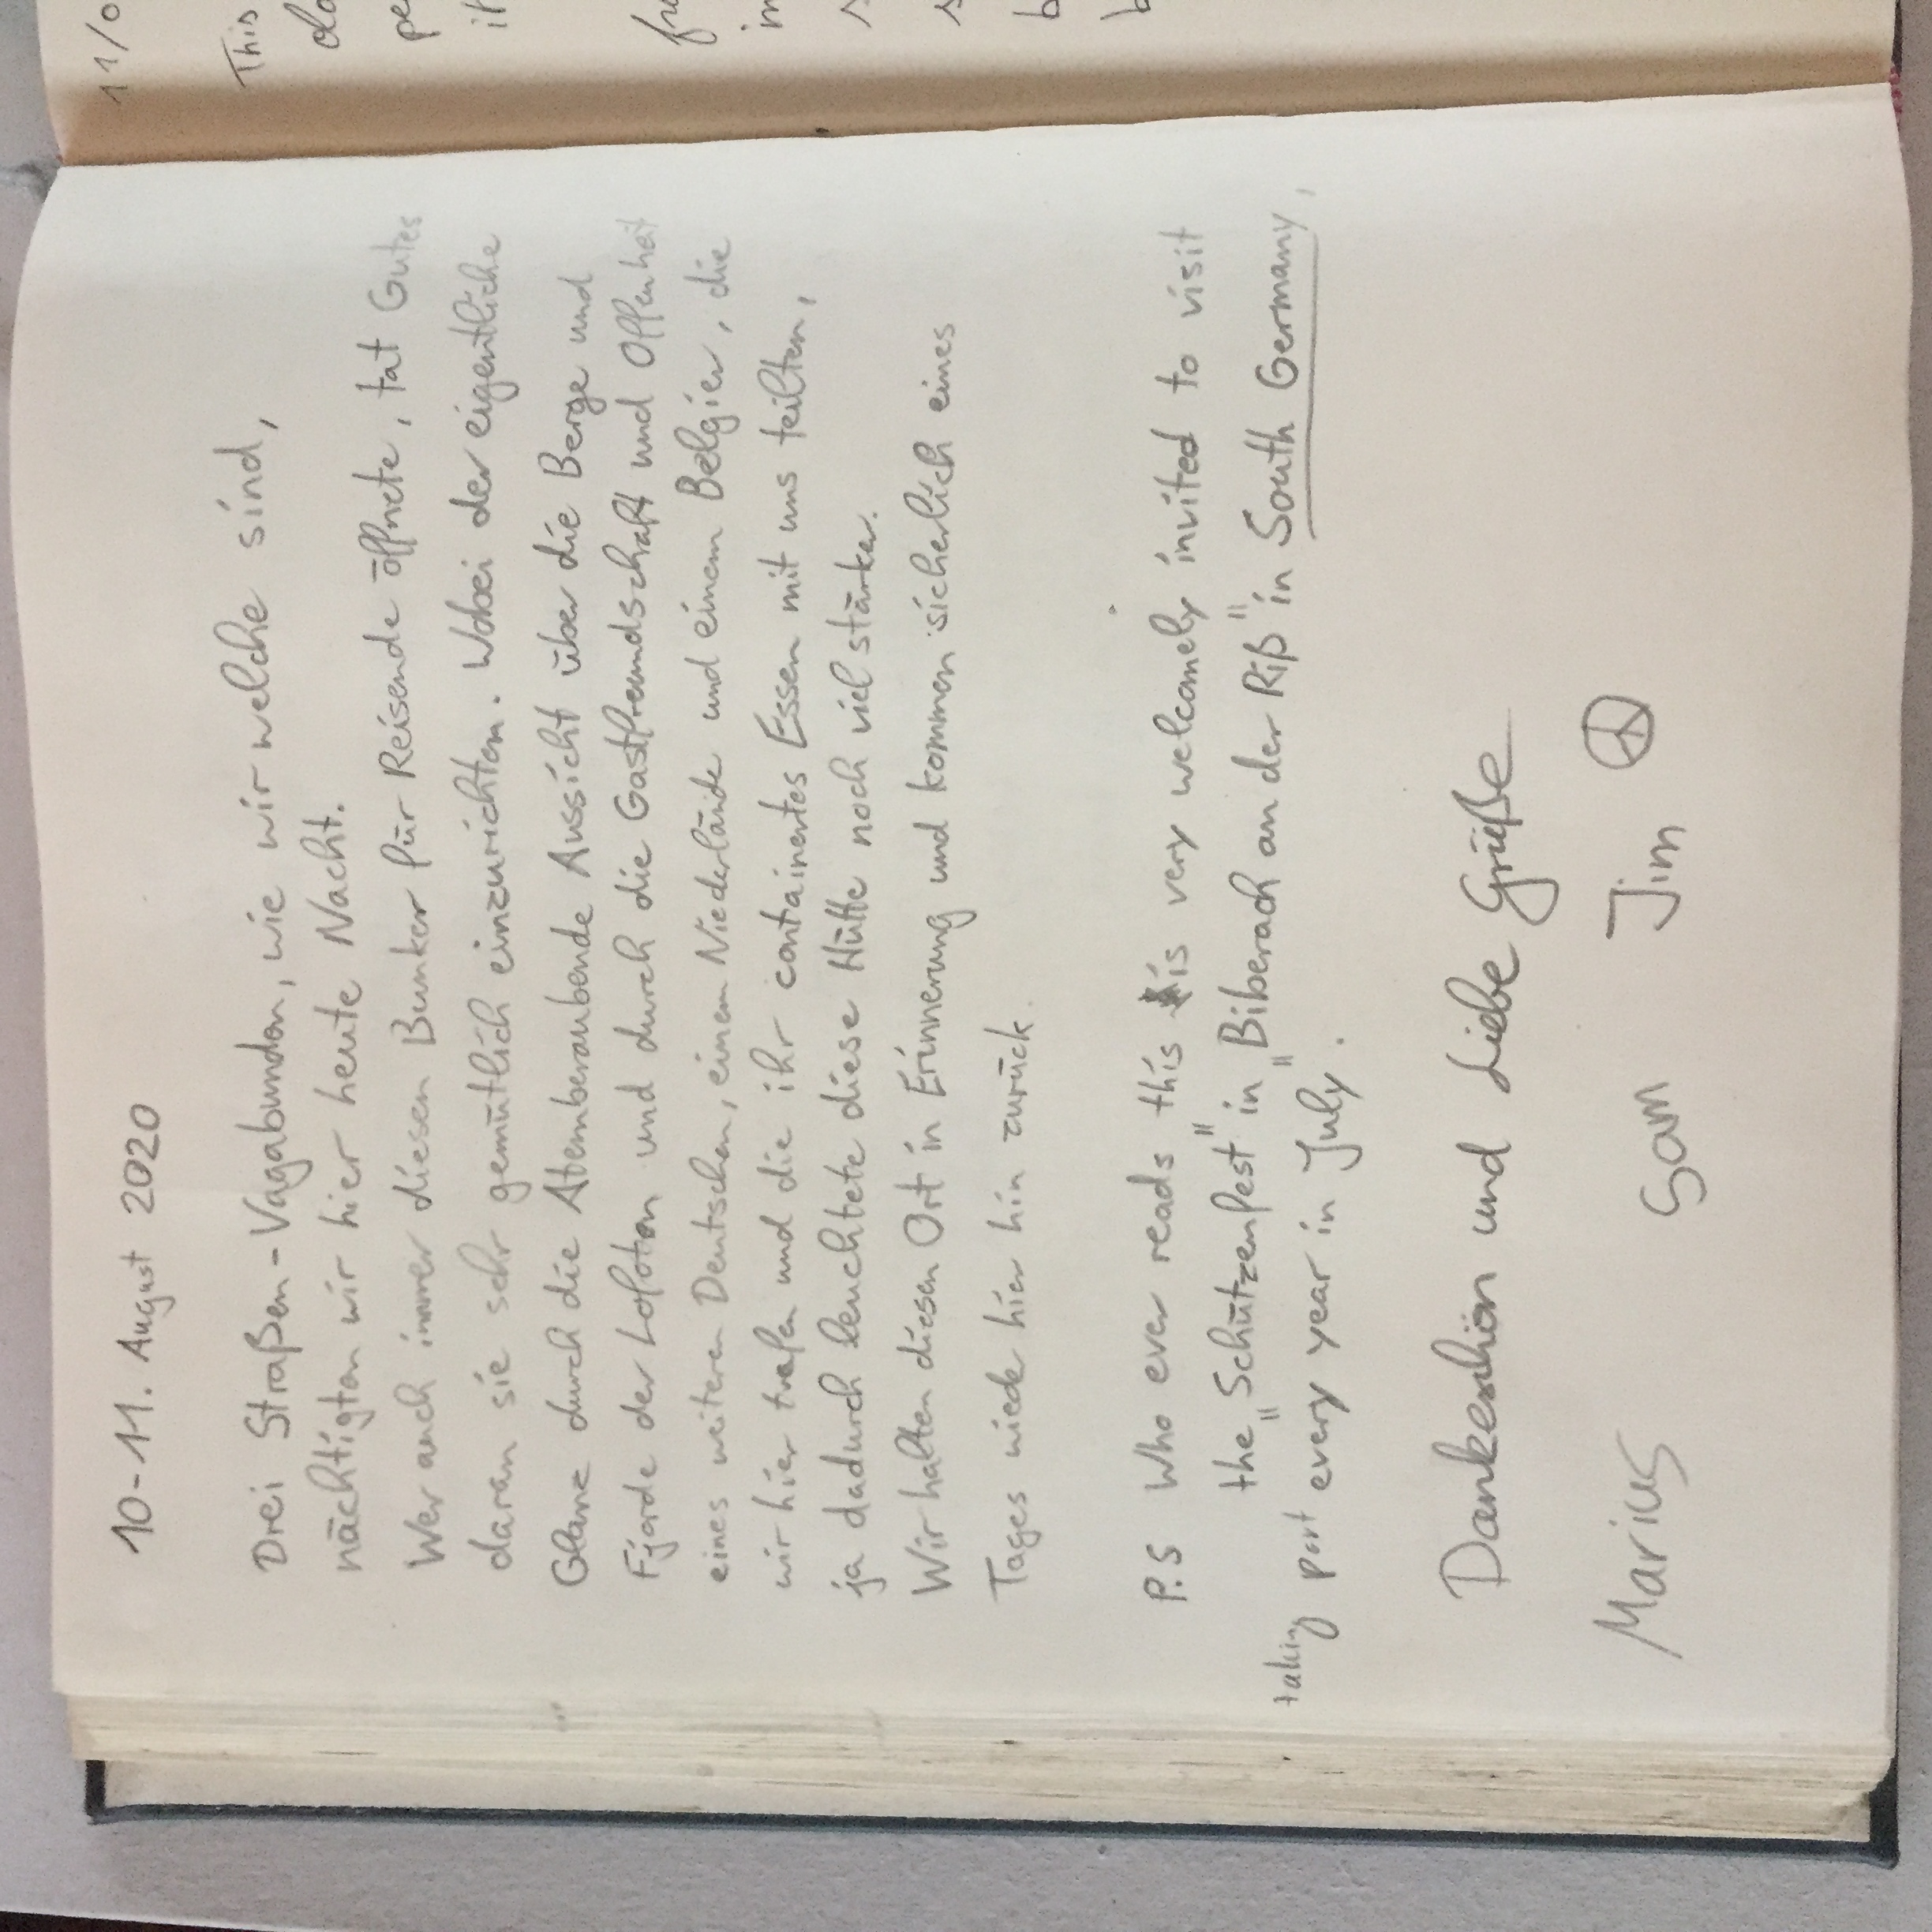 10-11. August 2020
Drei Straßen-Vagabunden, wie wir welche sind,
nächtigten wir hier heute Nacht.
Wer auch immer diesen Bunker für Reisende öffnete, tat Gutes
daran sie sehr gemütlich einzurichten. Wobei der eigentliche
Glanz durch die Atemberaubende Aussicht über die Berge und
Fjorde der Lofoten und durch die Gastfreundschaft und Offenheit
eines weiteren Deutschen, einem Niederlände und einem Belgier, die
wir hier trafen und die ihr containertes Essen mit uns teilten,
ja dadurch leuchtete diese Hütte noch viel stärker.
Wir halten diesen Ort in Erinnerung und kommen sicherlich eines
Tages wiede hier hin zurück.
P.S Who ever reads this is very welcomely invited to visit
the "Schützenfest" in "Biberach an der Riß" in South Germany,
taking part every year in July.
Dankeschön und Liebe Grüße
Marius Sam Jim
11/0
This